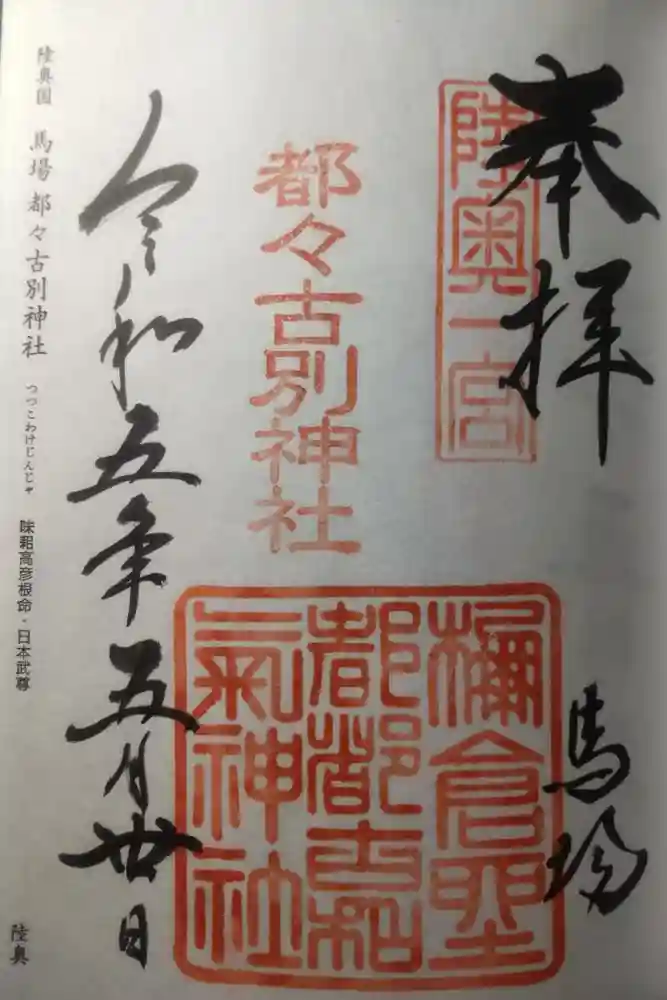 奉拝
陸奥一宮
馬場
都々古別神社
令和五年五月廿日
陸奥国 馬場都々古別神社 つつこわけじんじゃ 味耜高彦根命・日本武尊
陸奥